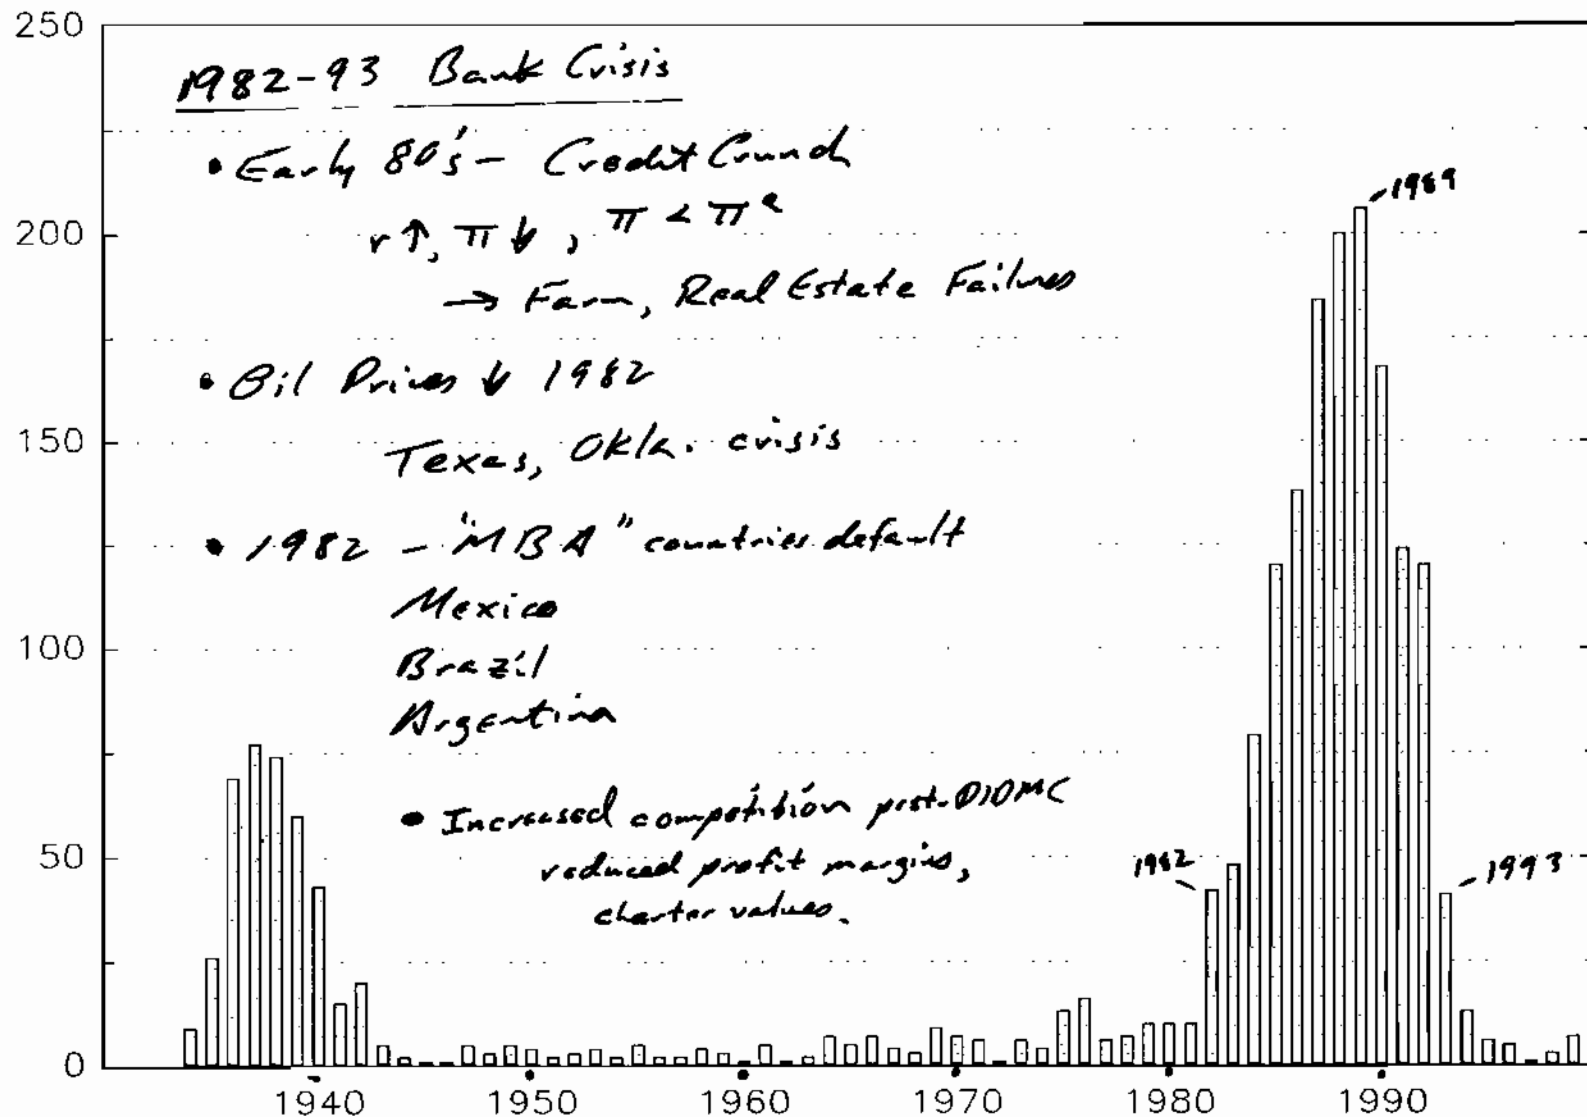 250
1982-93 Bank Crisis
• Early 80's - Credit Crunch
r↑, π↓, π < πᵉ
→ Farm, Real Estate Failures
• Oil Prices ↓ 1982
Texas, Okla. crisis
• 1982 - "MBA" countries default
Mexico
Brazil
Argentina
• Increased competition post-DIDMC
reduced profit margins,
charter values.
225
200
150
100
50
0
1989
1982
1993
1940 1950 1960 1970 1980 1990